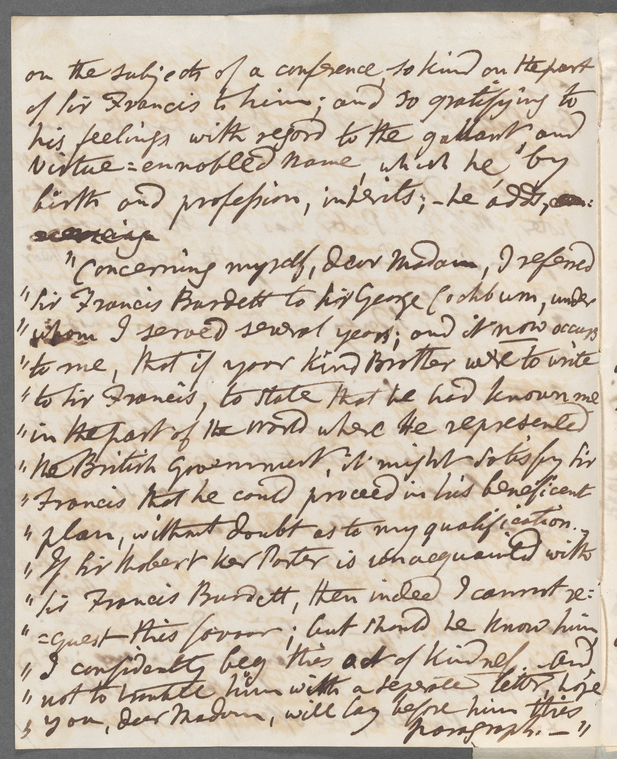 on the subjects of a conference, so kind on the part
of Sir Francis to him; and so gratifying to
his feelings with regard to the gallant and
virtue=ennobled name, which he, by
birth and profession, inherits; - he adds,
"Concerning myself, dear Madam, I referred
"Sir Francis Burdett to Sir George Cockburn, under
"whom I served several years; and it now occurs
"to me, that if your kind Brother were to write
"to Sir Francis, to state that he had known me
"in the part of the world where he represented
"the British Government, it might satisfy Sir
"Francis that he could proceed in his beneficent
"plan, without doubt as to my qualification..
"If Sir Robert Ker Porter is unacquainted with
"Sir Francis Burdett, then indeed I cannot re=
"=quest this favour; but should he know him,
"I confidently beg this act of kindness. And,
"not to trouble him with a seperate letter, hope
"you, dear Madam, will lay before him this
paragraph. — "